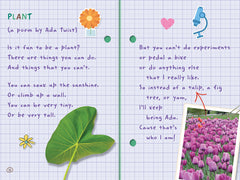 PLANT
(a poem by Ada Twist)
Is it fun to be a plant?
There are things you can do.
And things that you can't.
You can soak up the sunshine.
Or climb up a wall.
You can be very tiny.
Or be very tall.
But you can't do experiments
or pedal a bike
or do anything else
that I really like.
So instead of a tulip, a fig
tree, or yam,
I'll keep
being Ada.
'Cause that's
who I am!